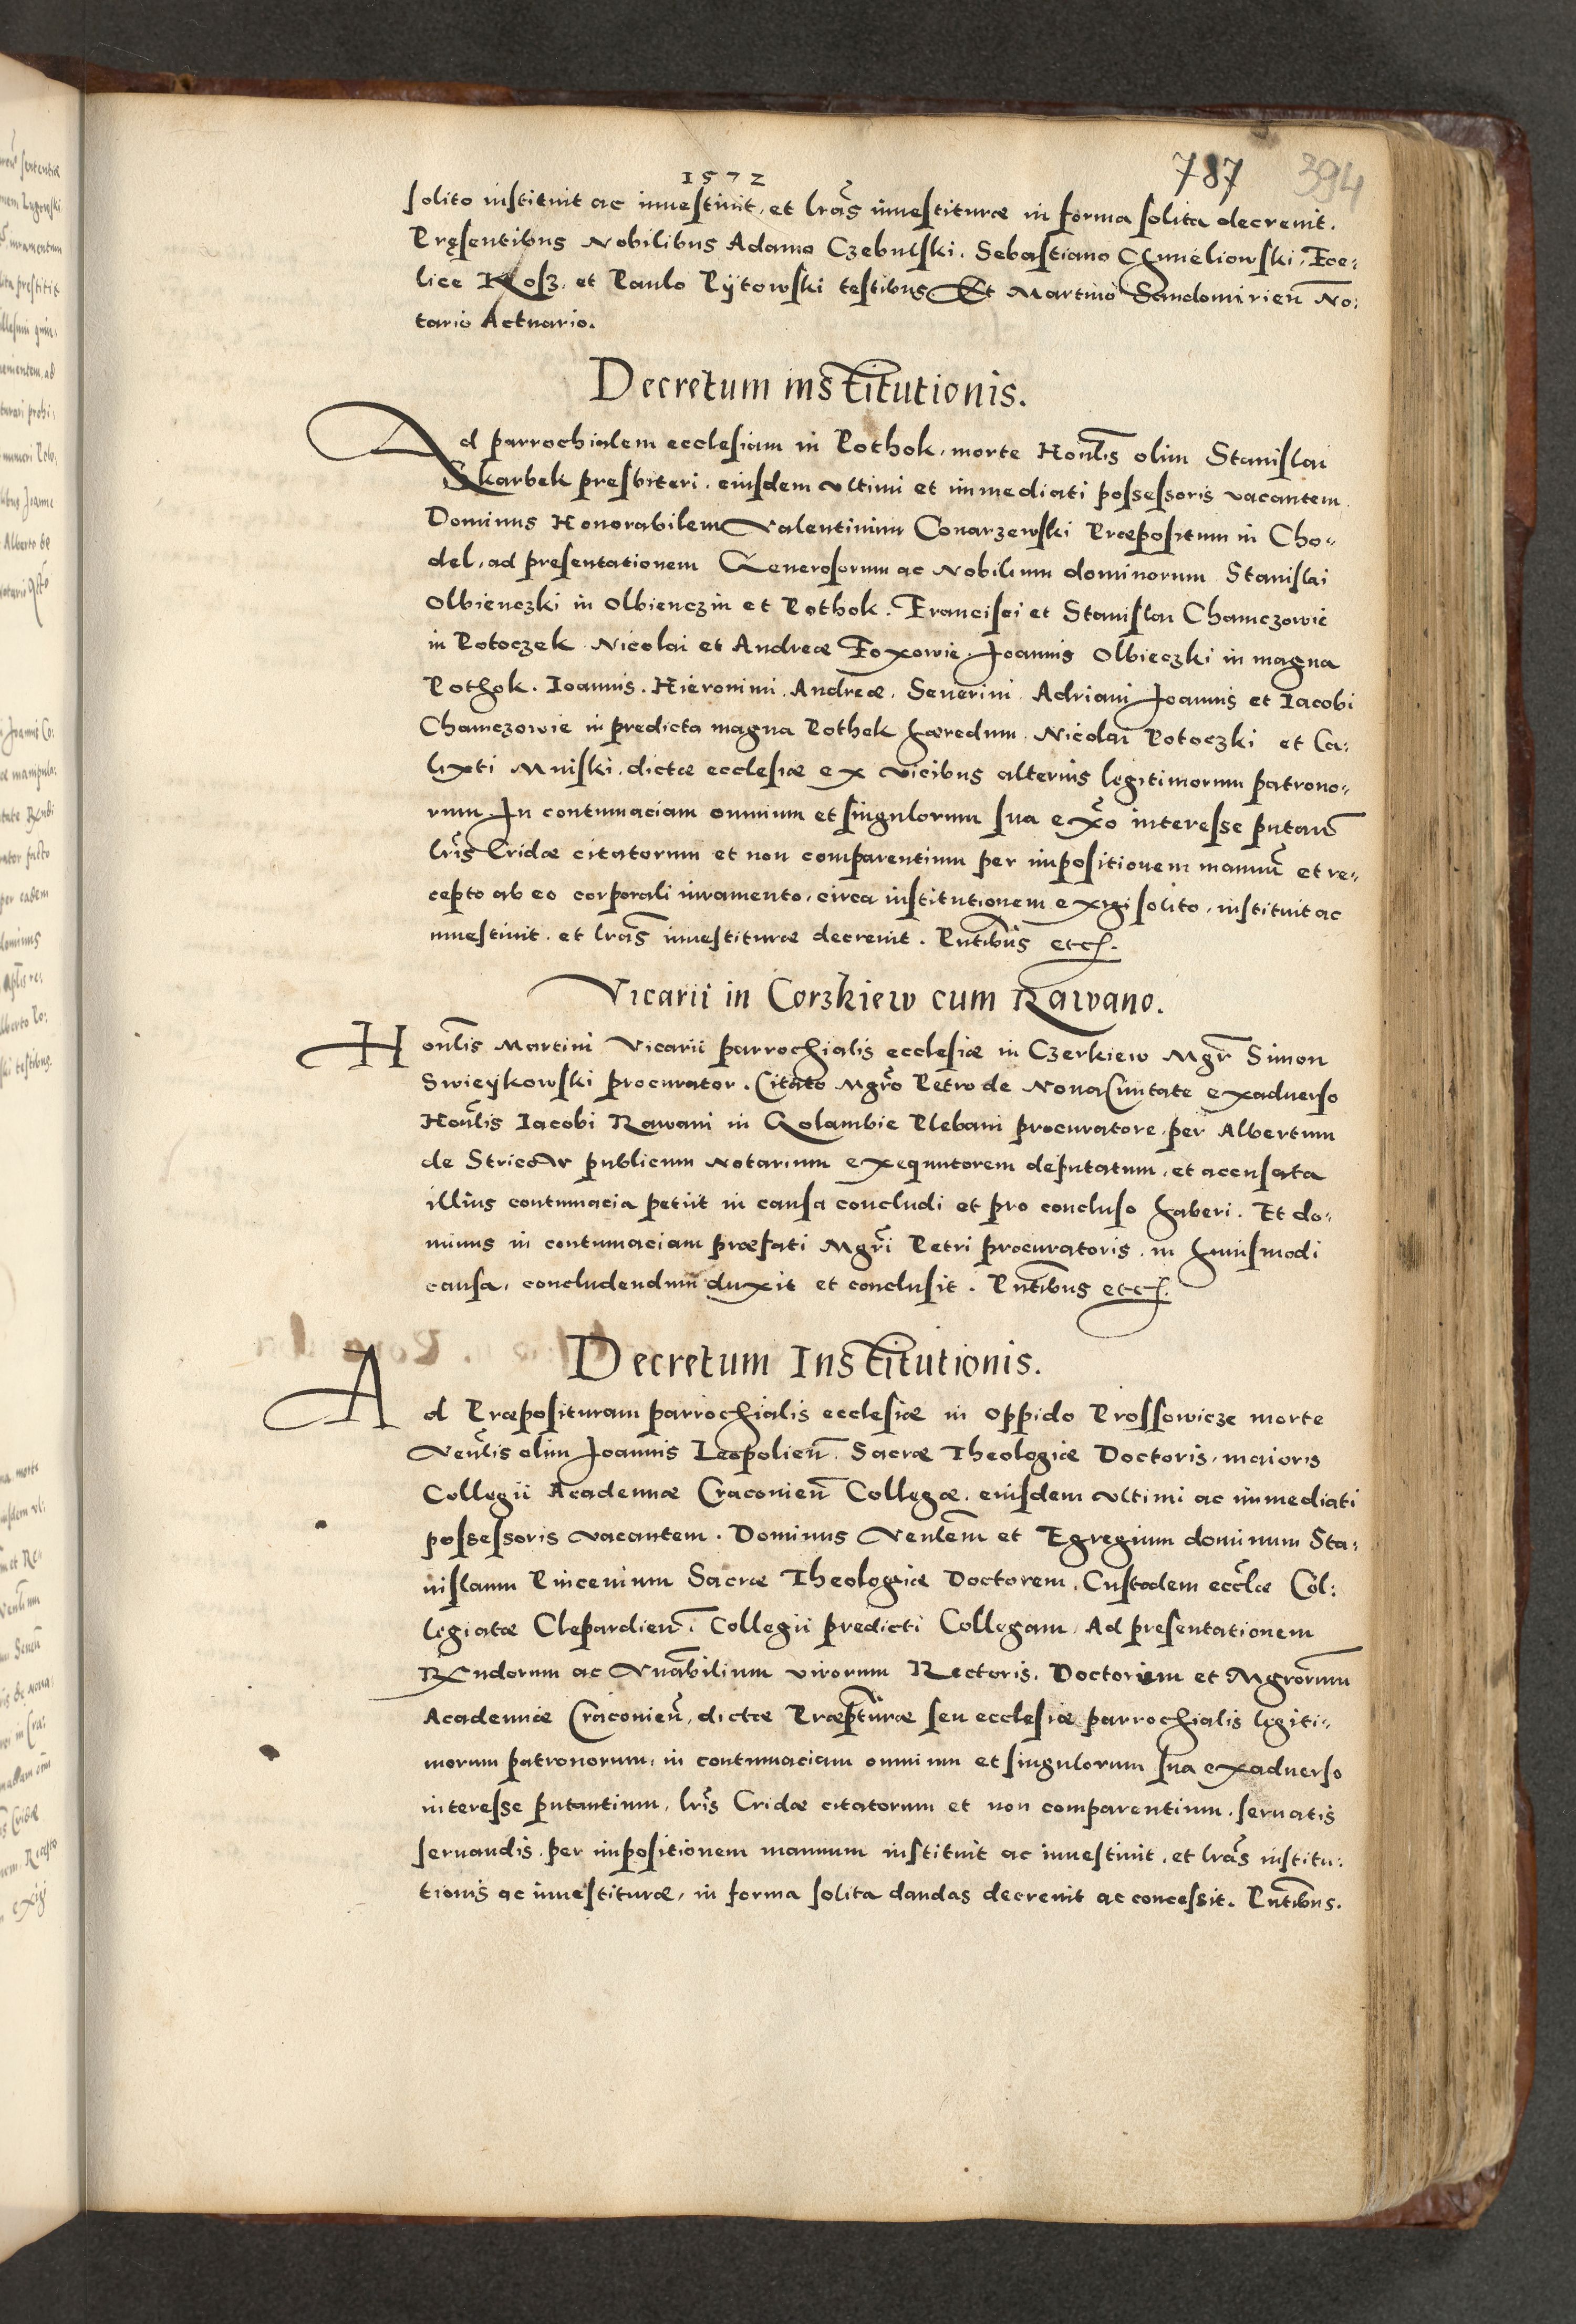 1572
787 394
solito instituit ac inuestiuit, et lras inuestituræ in forma solita decreuit.
Pręsentibus Nobilibus Adamo Czebulski. Sebastiano Chmieliowski, Foe:
lice Kłosz. et Paulo Pÿtowski testibus Et Martino Sandomirien No:
tario Actuario.
Decretum institutionis.
Ad parrochialem ecclesiam in Pothok, morte Honlis olim Stanislai
Skarbek presbiteri, eiusdem vltimi et immediati possessoris vacantem
Dominus Honorabilem Valentinum Conarzewski Præpositum in Cho=
del, ad presentationem Generosorum ac Nobilium dominorum Stanislai
Olbienczki in Olbienczin et Pothok. Francisci et Stanislai Chamczowie
in Potoczek Nicolai et Andreæ Foxowie, Joannis Olbieczki in magna
Pothok. Ioannis. Hieronimi. Andreæ. Seuerini Adriani Joannis et Iacobi
Chamczowie in predicta magna Pothek hæredum. Nicolai Potoczki et Ca:
lixti Mniski, dictæ ecclesiæ ex vicibus alternis legitimorum patrono=
rum. In contumaciam omnium et singulorum sua exo interesse putan
lris Cridæ citatorum et non comparentium per impositionem manuu et re=
cepto ab eo corporali iuramento, circa institutionem exigi solito, instituit ac
inuestiuit. et lras inuestituræ decreuit. Pntibus etc.
Vicarii in Corzkiew cum Rawano.
Honlis Martini Vicarii parrochialis ecclesiæ in Czerkiew Mgr Simon
Swieÿkowski procurator. Citato Mgro Petro de Noua Ciuitate exaduerso
Honlis Iacobi Rawani in Golambie Plebani procuratore, per Albertum
de Stricow publicum Notarium exequutorem deputatum, et accusata
illius contumacia petiit in causa concludi et pro concluso haberi. Et do:
minus in contumaciam præfati Mgri Petri procuratoris, in huiusmodi
causa, concludendum duxit et conclusit. Pntibus etc.
Decretum Institutionis.
Ad Præposituram parrochialis ecclesiæ in oppido Prossowicze morte
Venlis olim Joannis Leopolien. Sacræ Theologiæ Doctoris, maioris
Collegii Academiæ Craconien Collegæ, eiusdem vltimi ac immediati
possessoris vacantem. Dominus Venlem et Egregium dominum Sta:
nislaum Pincenium Sacræ Theologiæ Doctorem, Custodem eccliæ Col:
legiatæ Clepardien. Collegii predicti Collegam, Ad presentationem
Rndorum ac Vnabilium virorum Rectoris, Doctorum et Mgrorum
Academiæ Craconien, dictæ Præptturæ seu ecclesiæ parrochialis legiti=
morum patronorum, in contumaciam omnium et singulorum sua exaduerso
interesse putantium, lris Cridæ citatorum et non comparentium, seruatis
seruandis, per impositionem manuum instituit ac inuestiuit, et lras institu:
tionis ac inuestituræ, in forma solita dandas decreuit ac concessit. Pntibus.